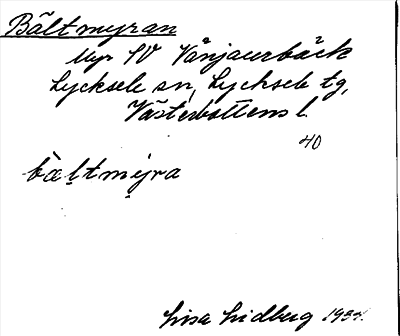 Bältmyran
Myr SV Vånjaurbäck
Lycksele sn, Lycksele tg,
Västerbottens l.
40
bàl̥tmy̥ra
Lisa Lidberg 1934.